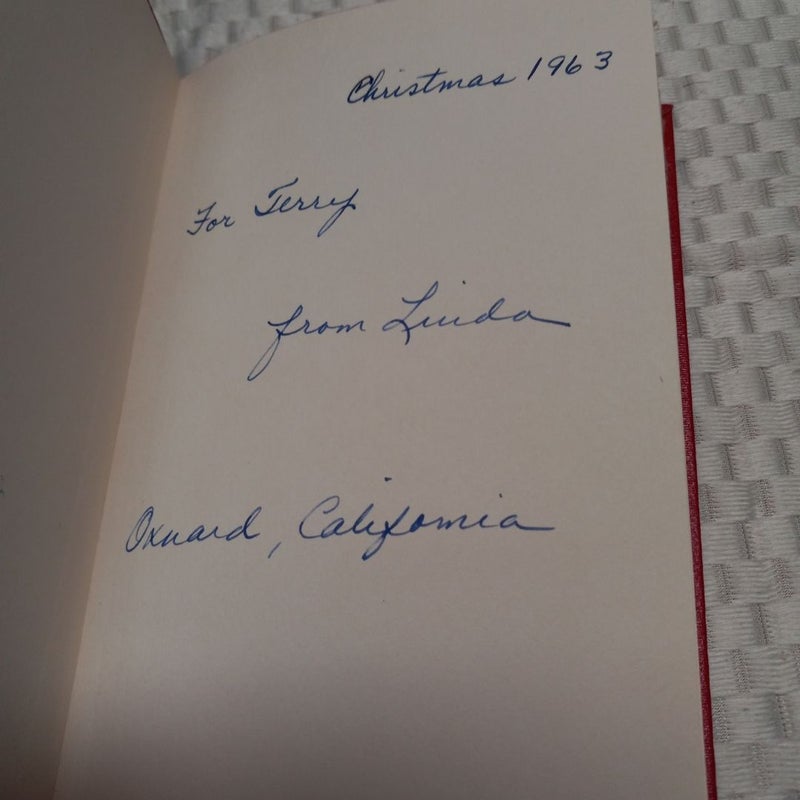 Christmas 1963
For Terry
from Linda
Oxnard, California